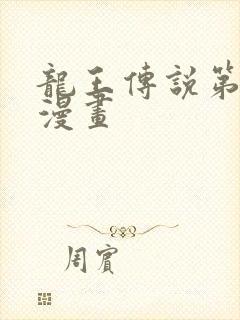 龍王傳說第
漫畫
周賓